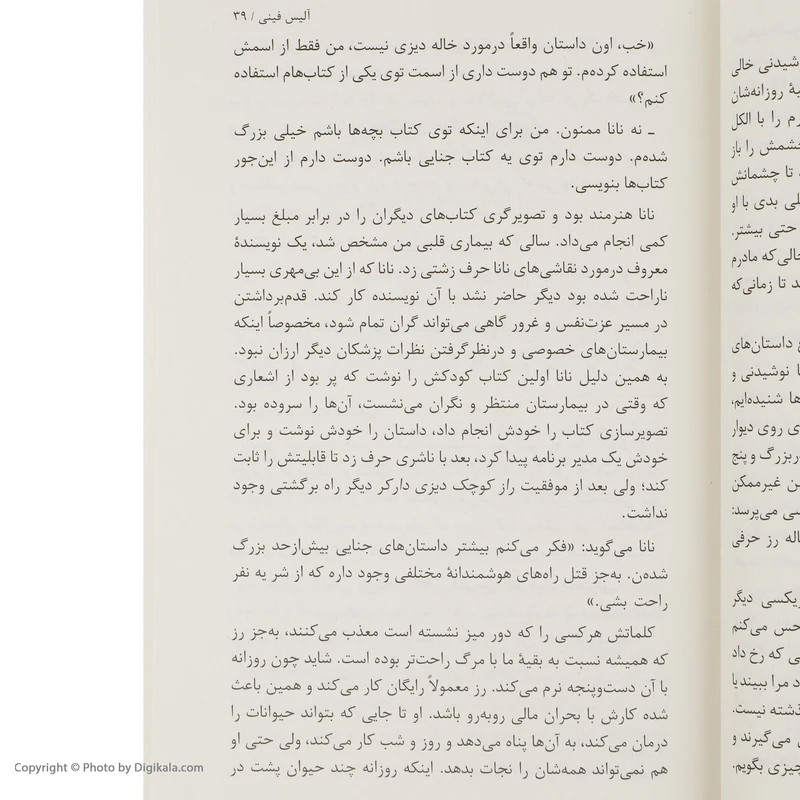 آلیس فینی / ۳۹
«خب، اون داستان واقعاً درمورد خاله دیزی نیست، من فقط از اسمش
استفاده کرده‌م. تو هم دوست داری از اسمت توی یکی از کتاب‌هام استفاده
کنم؟»
ـ نه نانا ممنون. من برای اینکه توی کتاب بچه‌ها باشم خیلی بزرگ
شده‌م. دوست دارم توی یه کتاب جنایی باشم. دوست دارم از این‌جور
کتاب‌ها بنویسی.
نانا هنرمند بود و تصویرگری کتاب‌های دیگران را در برابر مبلغ بسیار
کمی انجام می‌داد. سالی که بیماری قلبی من مشخص شد، یک نویسندهٔ
معروف درمورد نقاشی‌های نانا حرف زشتی زد. نانا که از این بی‌مهری بسیار
ناراحت شده بود دیگر حاضر نشد با آن نویسنده کار کند. قدم‌برداشتن
در مسیر عزت‌نفس و غرور گاهی می‌تواند گران تمام شود، مخصوصاً اینکه
بیمارستان‌های خصوصی و درنظرگرفتن نظرات پزشکان دیگر ارزان نبود.
به همین دلیل نانا اولین کتاب کودکش را نوشت که پر بود از اشعاری
که وقتی در بیمارستان منتظر و نگران می‌نشست، آن‌ها را سروده بود.
تصویرسازی کتاب را خودش انجام داد، داستان را خودش نوشت و برای
خودش یک مدیر برنامه پیدا کرد، بعد با ناشری حرف زد تا قابلیتش را ثابت
کند؛ ولی بعد از موفقیت راز کوچک دیزی دارکر دیگر راه برگشتی وجود
نداشت.
نانا می‌گوید: «فکر می‌کنم بیشتر داستان‌های جنایی بیش‌ازحد بزرگ
شده‌ن. به‌جز قتل راه‌های هوشمندانهٔ مختلفی وجود داره که از شر یه نفر
راحت بشی.»
کلماتش هرکسی را که دور میز نشسته است معذب می‌کنند، به‌جز رز
که همیشه نسبت به بقیهٔ ما با مرگ راحت‌تر بوده است. شاید چون روزانه
با آن دست‌وپنجه نرم می‌کند. رز معمولاً رایگان کار می‌کند و همین باعث
شده کارش با بحران مالی روبه‌رو باشد. او تا جایی که بتواند حیوانات را
درمان می‌کند، به آن‌ها پناه می‌دهد و روز و شب کار می‌کند، ولی حتی او
هم نمی‌تواند همه‌شان را نجات بدهد. اینکه روزانه چند حیوان پشت در
شیدنی خالی
روزانه‌شان
رم را با الکل
چشمش را باز
تا چشمانش
لی بدی با او
حتی بیشتر.
حالی که مادرم
د تا زمانی‌که
داستان‌های
نوشیدنی و
ها شنیده‌ایم،
ی روی دیوار
ربزرگ و پنج
ن غیرممکن
سی می‌پرسد:
اله رز حرفی
ریکسی دیگر
حس می‌کنم
ی که رخ داد
د مرا ببیند یا
ذشته نیست.
می‌گیرند و
چیزی بگویم.
Copyright © Photo by Digikala.com